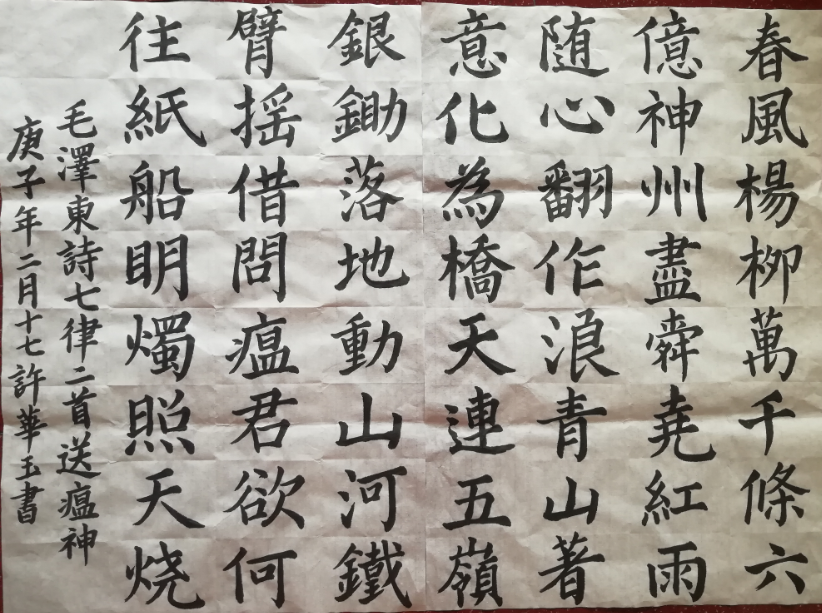 春風楊柳萬千條六
億神州盡舜堯紅雨
随心翻作浪青山著
意化為橋天連五嶺
銀鋤落地動山河鐵
臂摇借問瘟君欲何
往紙船明燭照天烧
毛澤東詩七律二首送瘟神
庚子年二月十七許華玉書